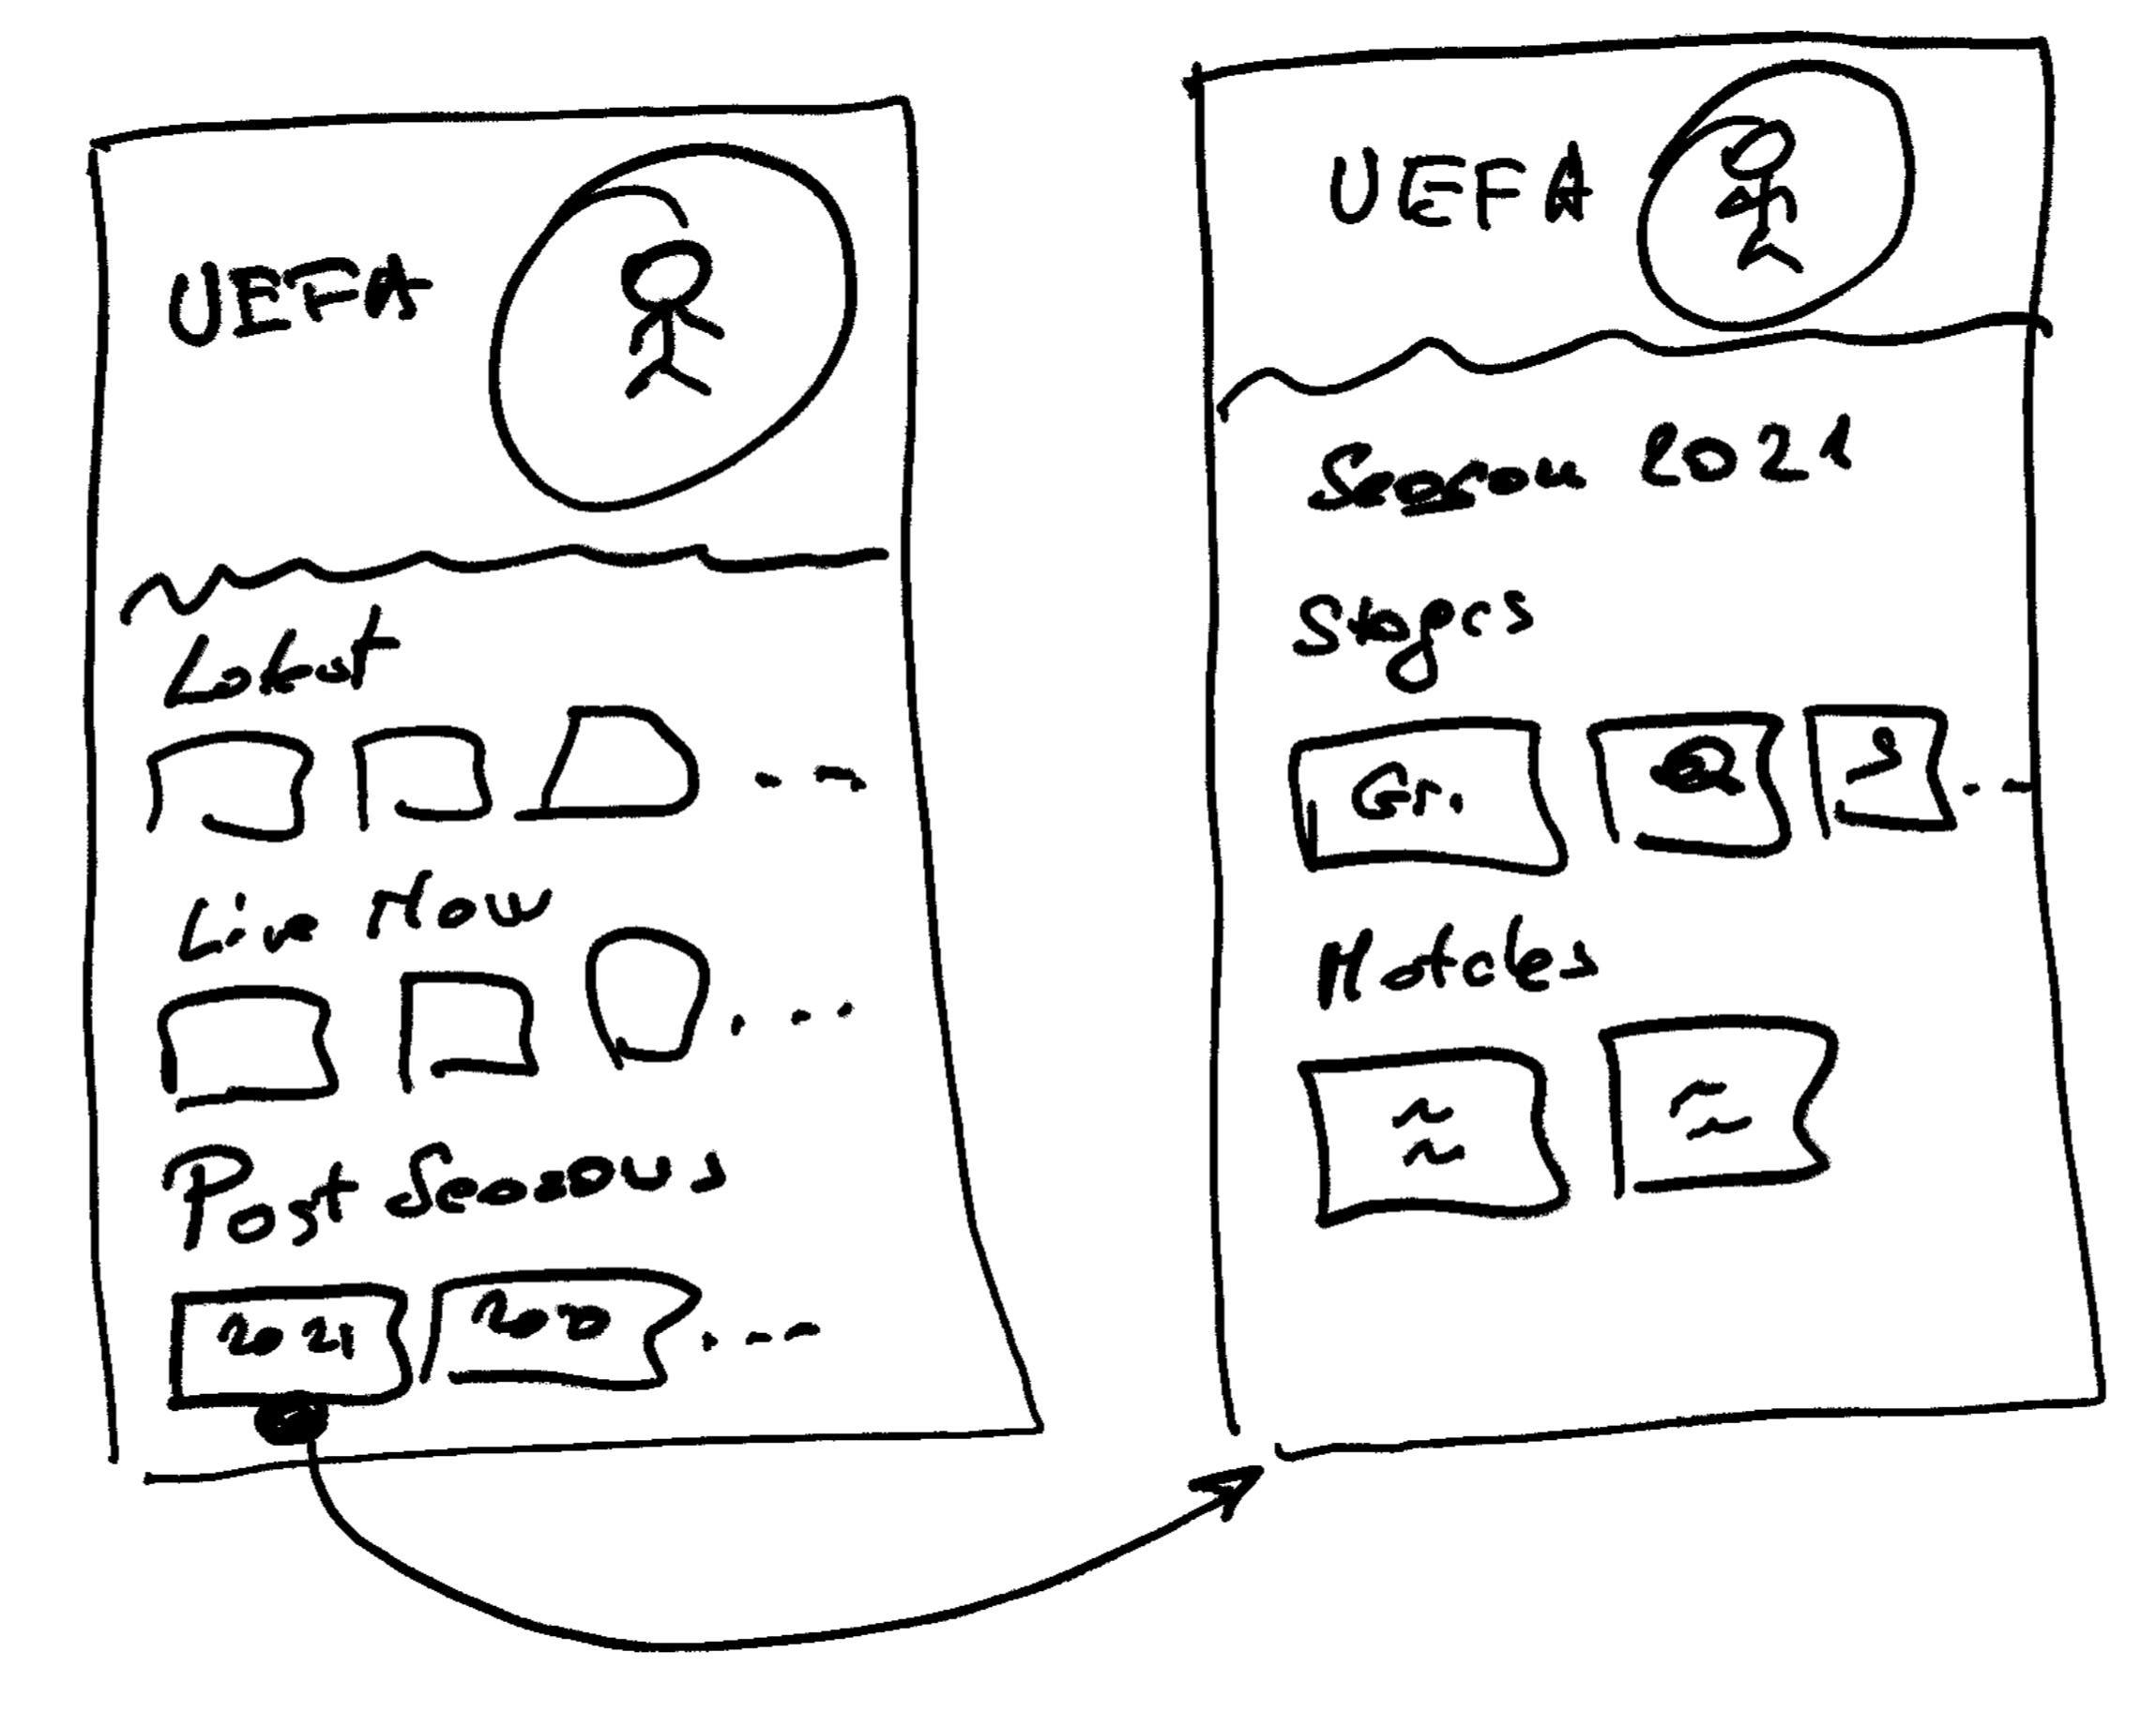 UEFA
Latest
Live Now
Past Seasons
2021
2020
UEFA
Season 2021
Stages
Gr.
Q
S
Matches